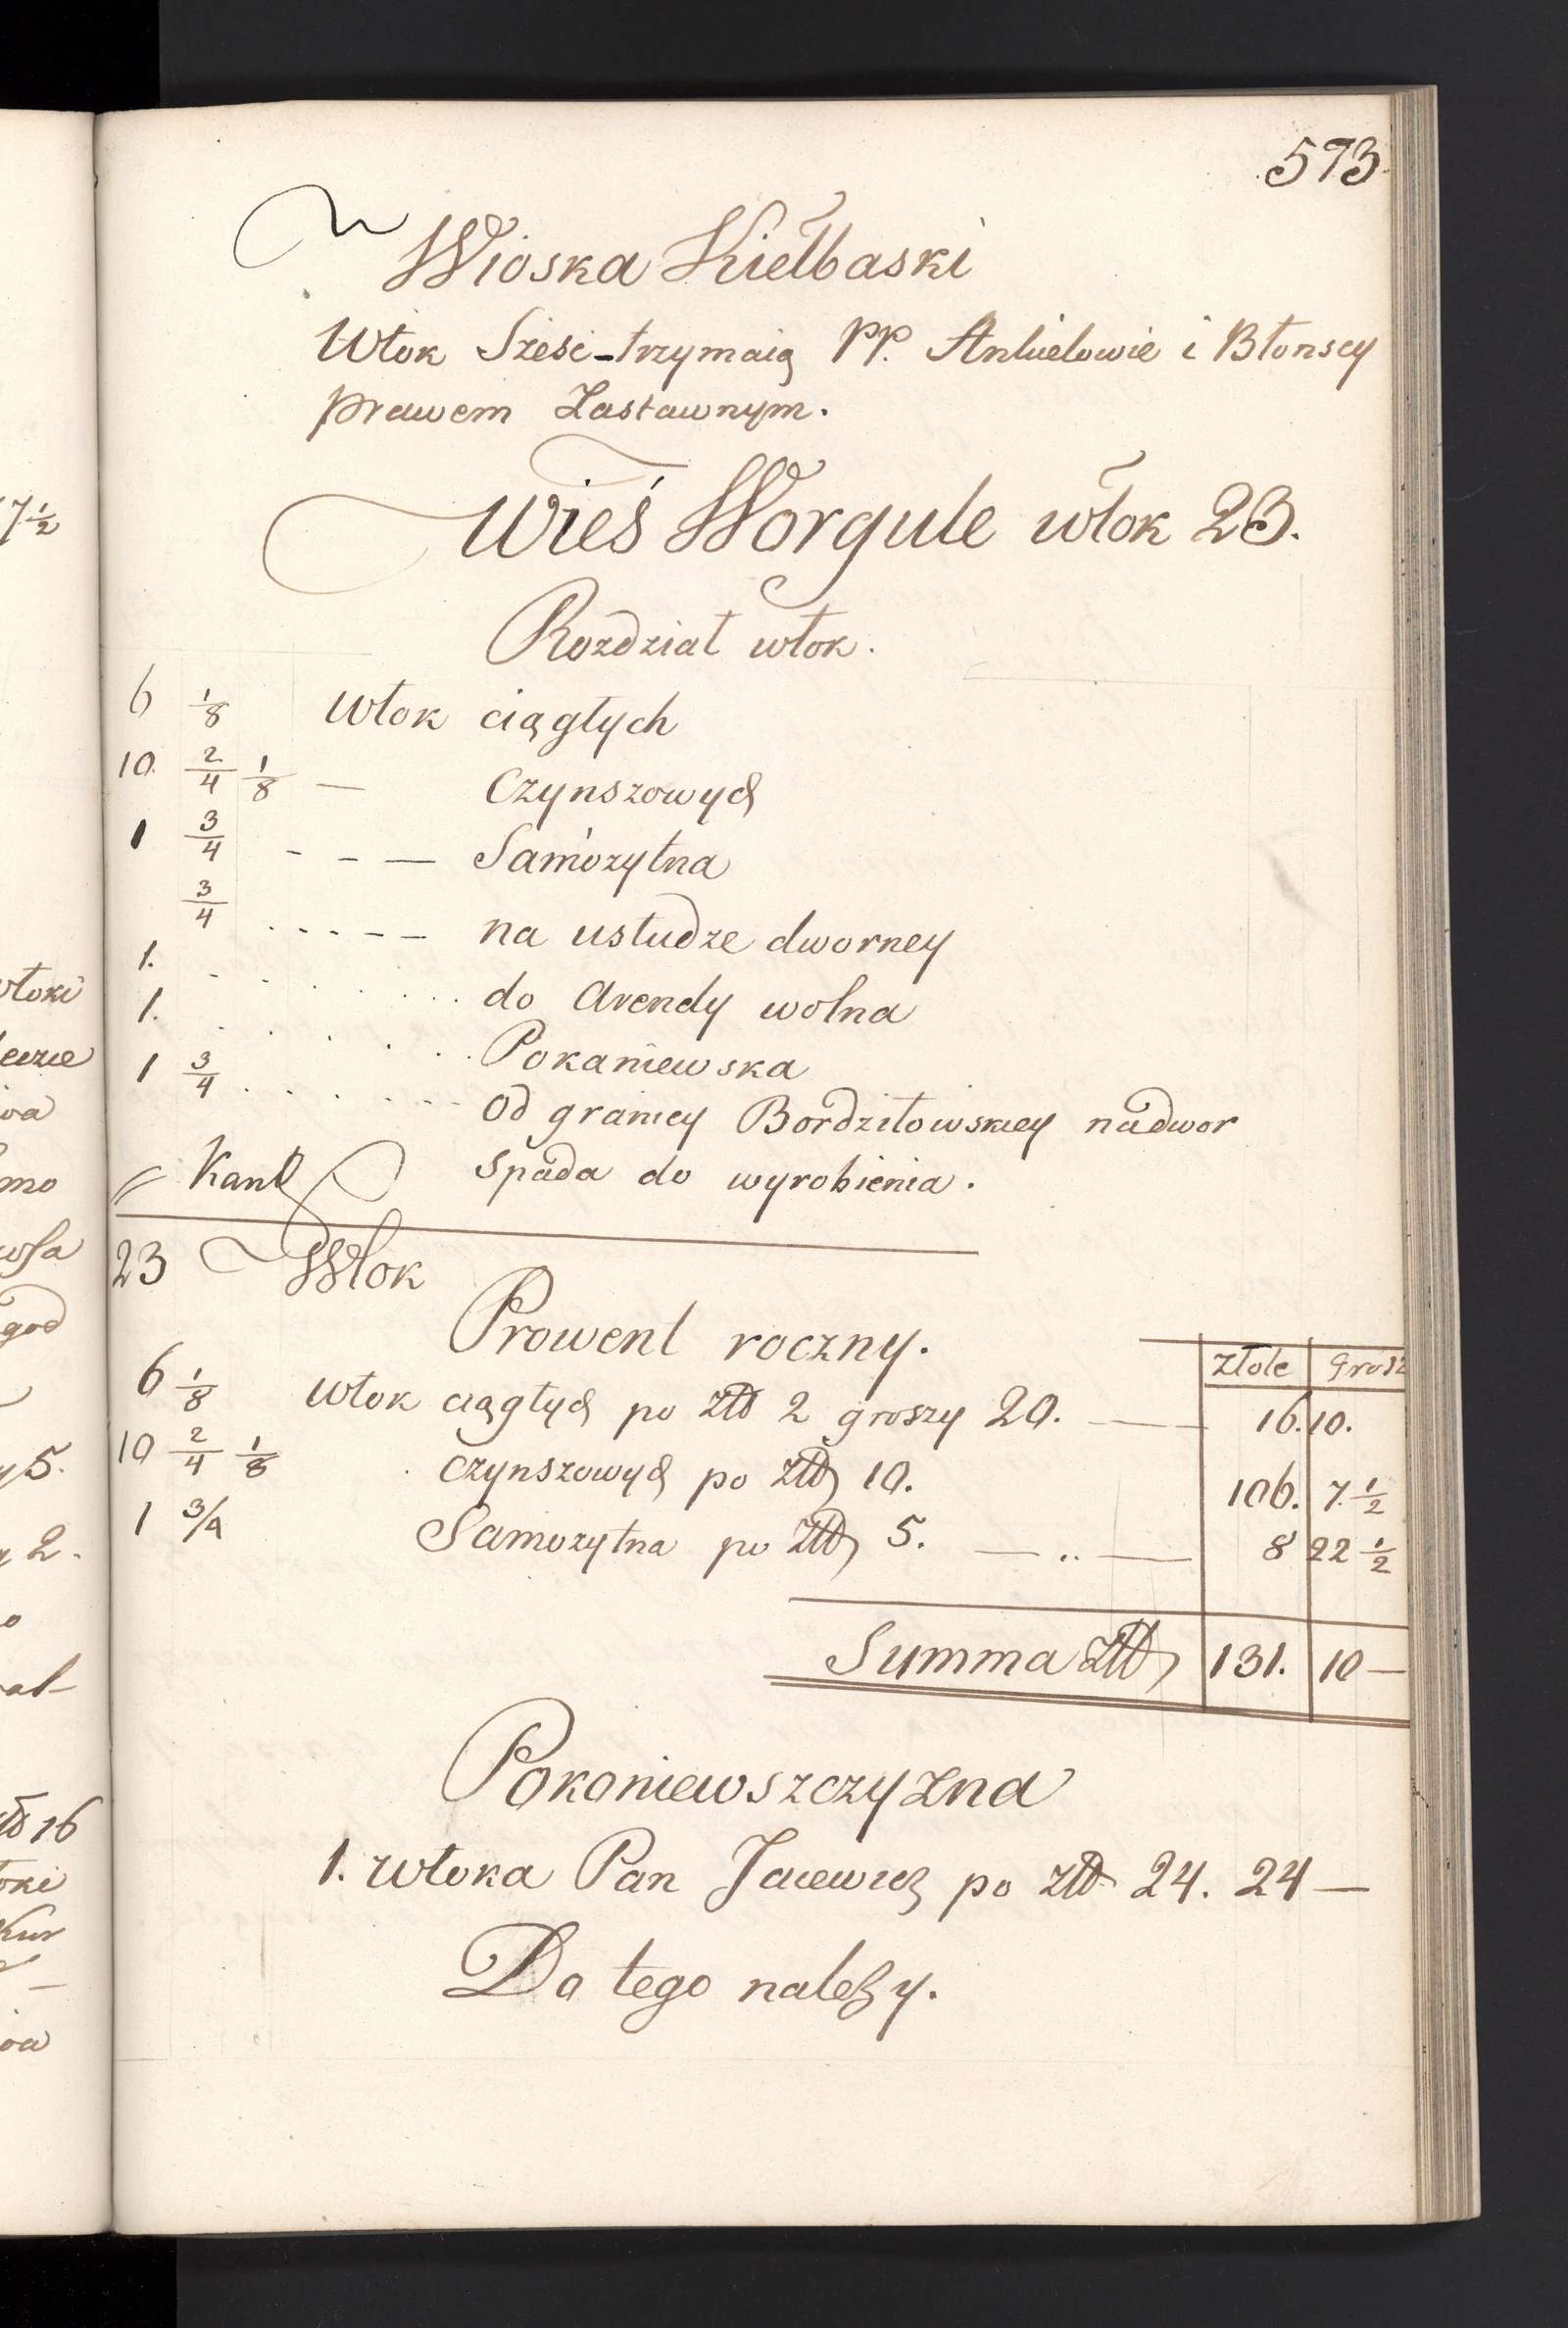 573
Wioska Kiełbaski
Włok Sześć trzymaią PP. Ankielowie i Błonscy
prawem Zastawnym.
Wieś Worgule włok 23.
Rozdział włok.
6 1/8 Włok ciągłych
10. 2/4 1/8 — Czynszowych
1 3/4 - - — Samozytna
3/4 - - - - - na usłudze dworney
1. do Arendy wolna
1. Pokaniewska
1 3/4 od granicy Bordziłowskiey na dwor
spada do wyrobienia.
23 Włok
Prowent roczny.
Złote Grosz
6 1/8 włok ciągłych po złł 2 groszy 20. — 16. 10.
10 2/4 1/8 czynszowych po złł 10. 106. 7. 1/2
1 3/4 Samozytna po złł 5. — .. — 8 22 1/2
Summa złł 131. 10 —
Pokoniewszczyzna
1. włoka Pan Jacewicz po złł 24. 24 —
Do tego należy.